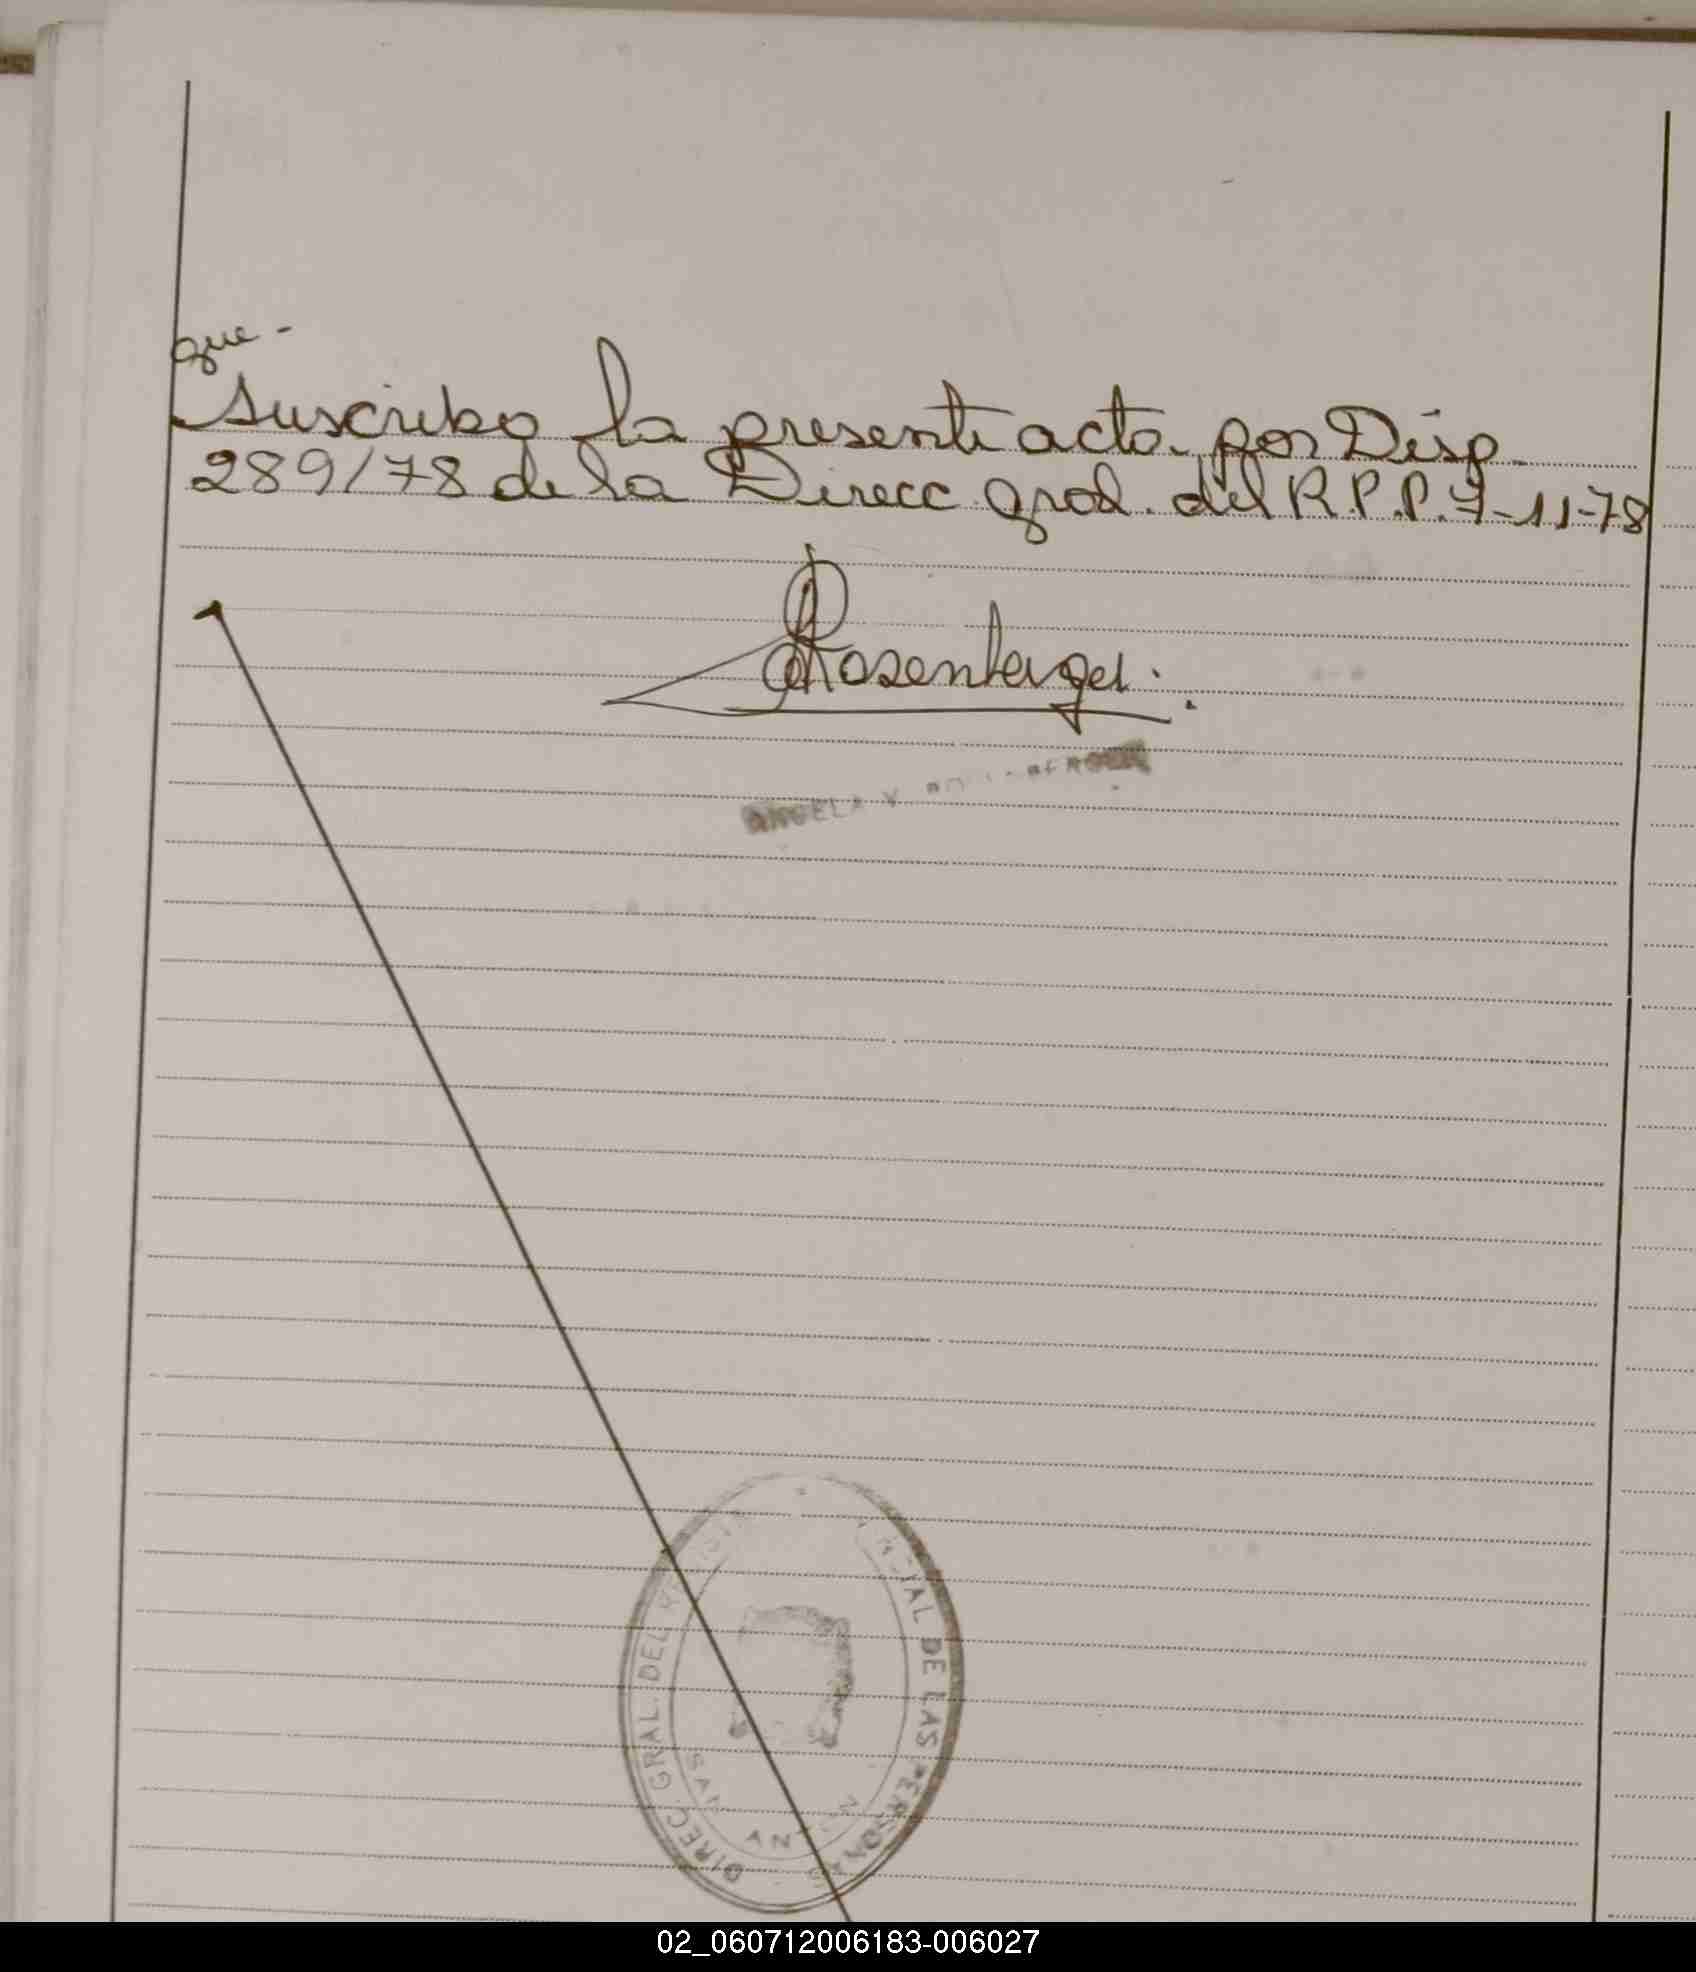 que-
suscribo la presente acta por Disp.
289/78 de la Direcc. gral. del R.P.P. 7-11-78
Rosenberger.
ANGELA V.
DIREC. GRAL. DEL DE LAS PERSONAS
SAN
02_060712006183-006027